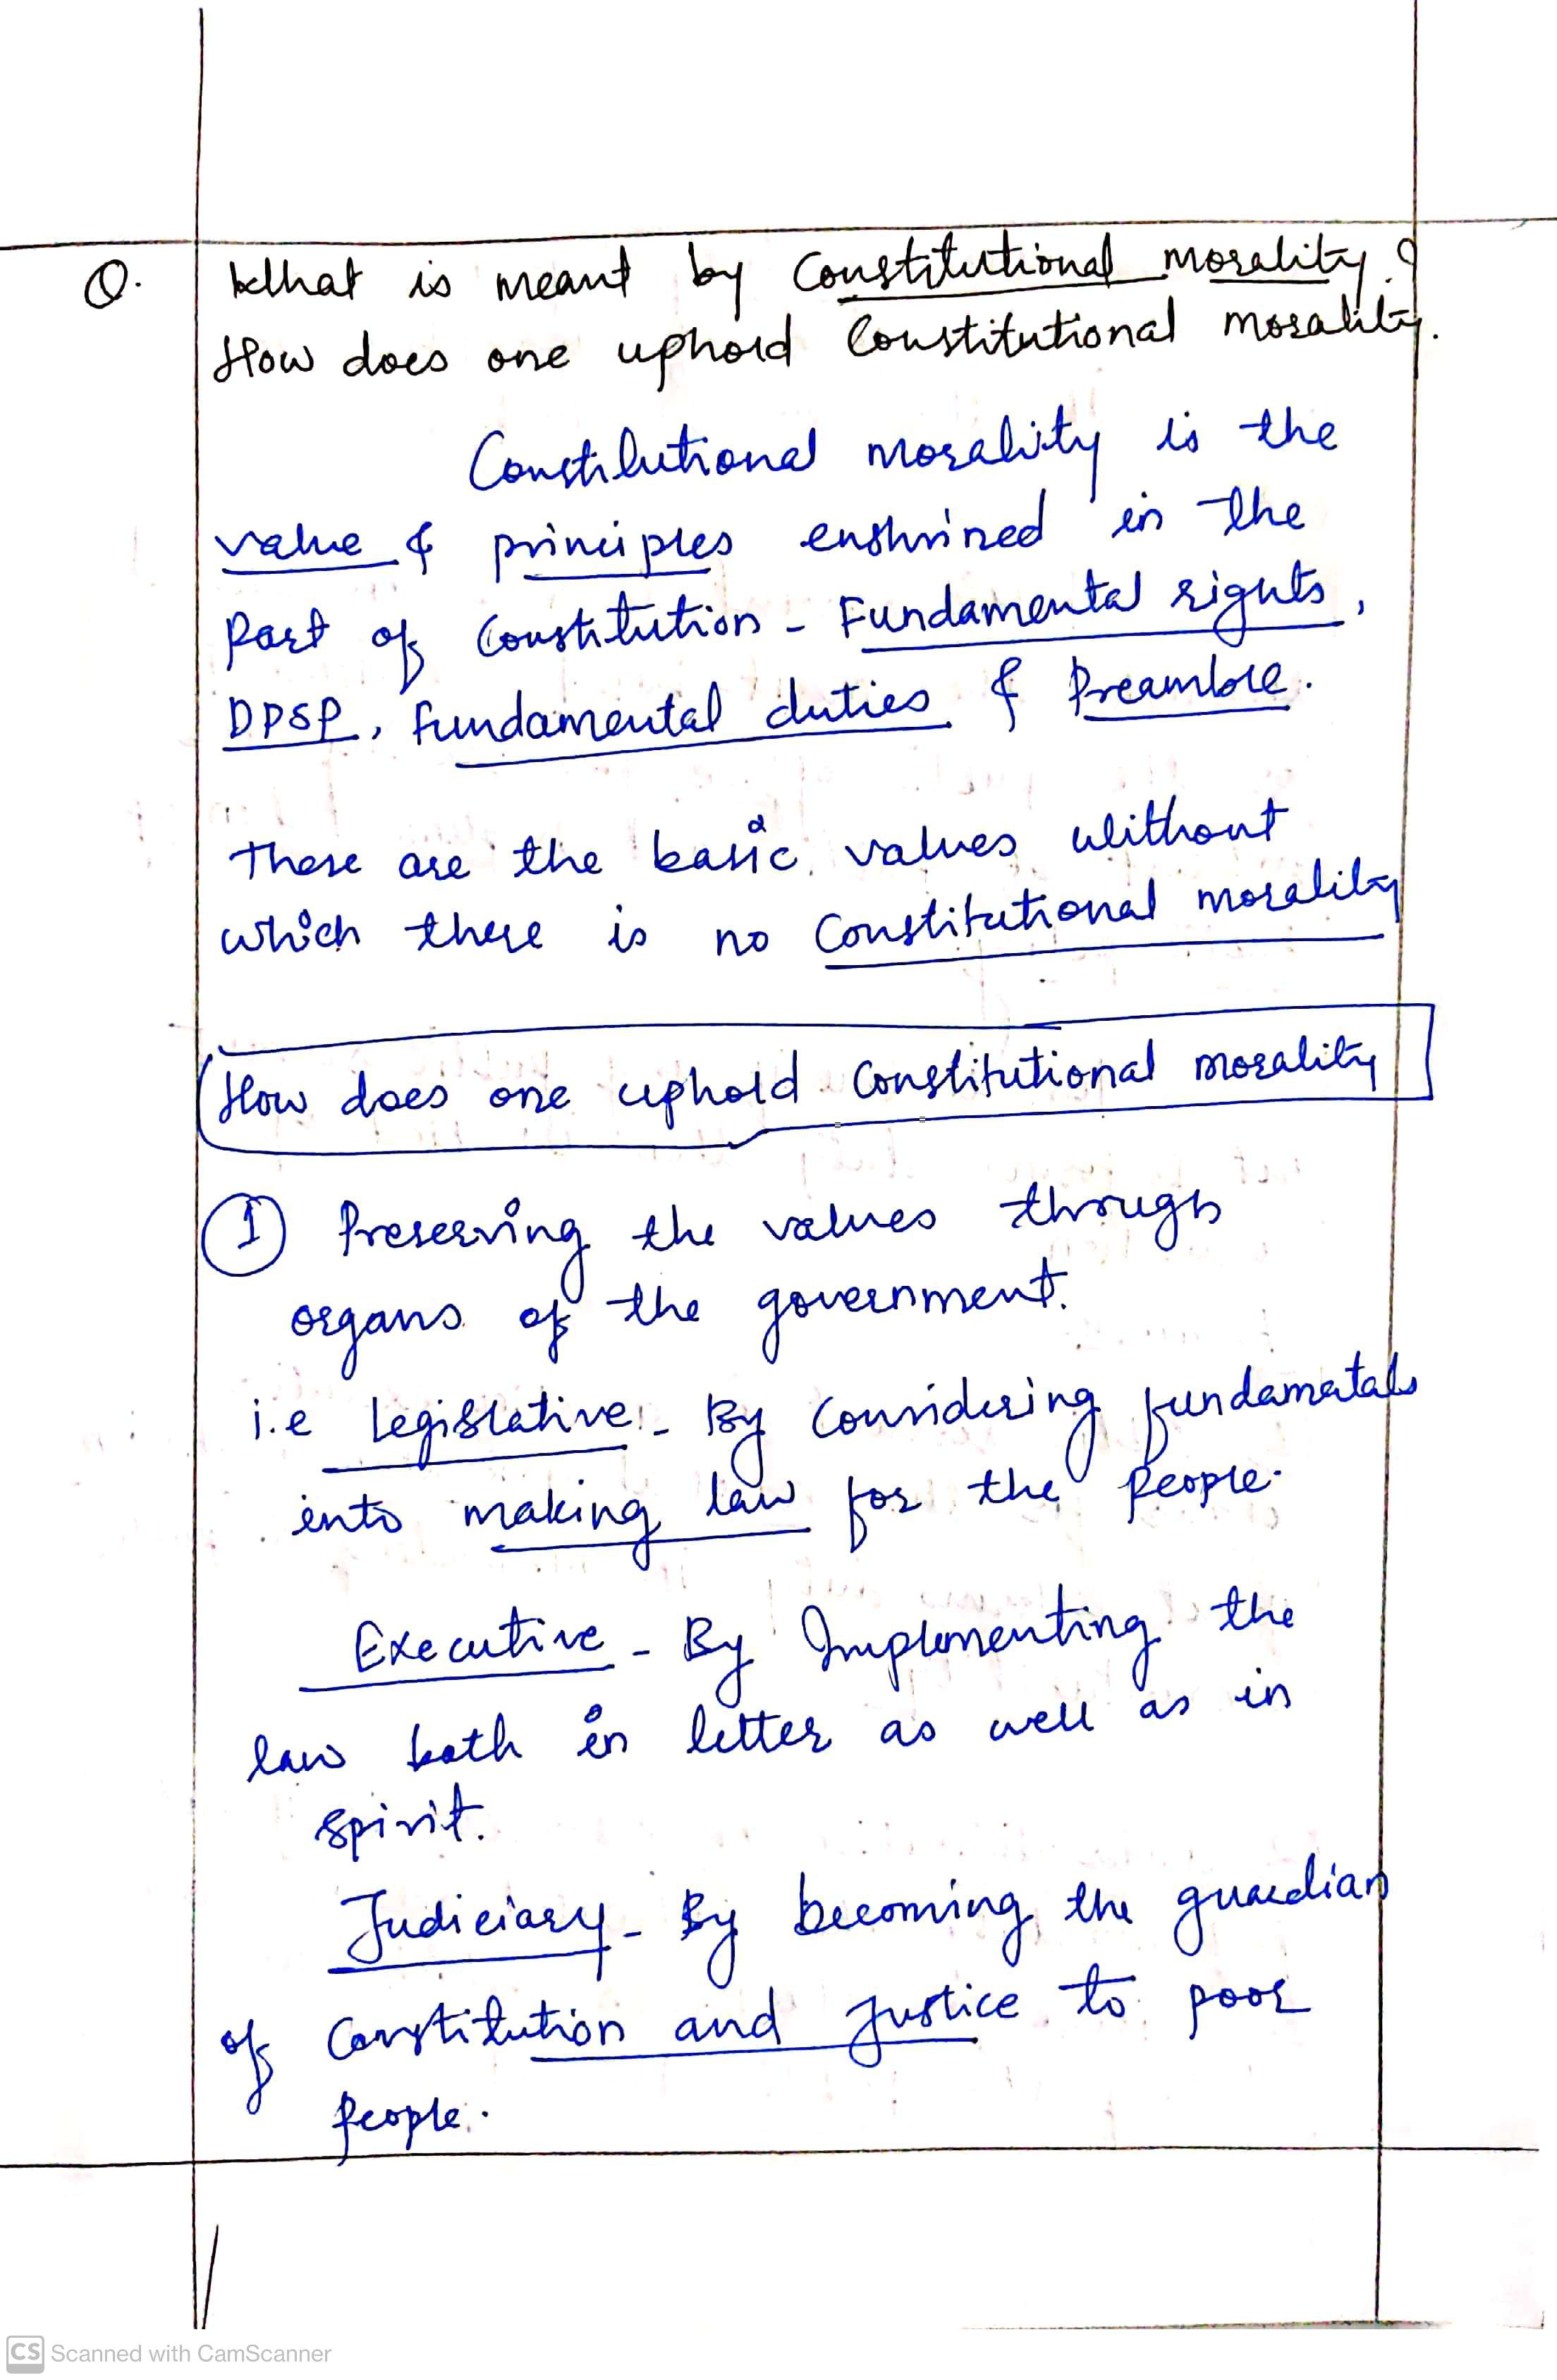 Q. What is meant by Constitutional morality?
How does one uphold Constitutional morality.
Constitutional morality is the
value & principles enshrined in the
Part of Constitution - Fundamental rights,
DPSP, Fundamental duties & Preamble.
These are the basic values without
which there is no Constitutional morality
How does one uphold Constitutional morality
1 Preserving the values through
organs of the government.
i.e Legislative - By Considering fundamatals
into making law for the People.
Executive - By Implementing the
law both in letter as well as in
spirit.
Judiciary - By becoming the guardian
of Constitution and Justice to poor
People.
CS Scanned with CamScanner